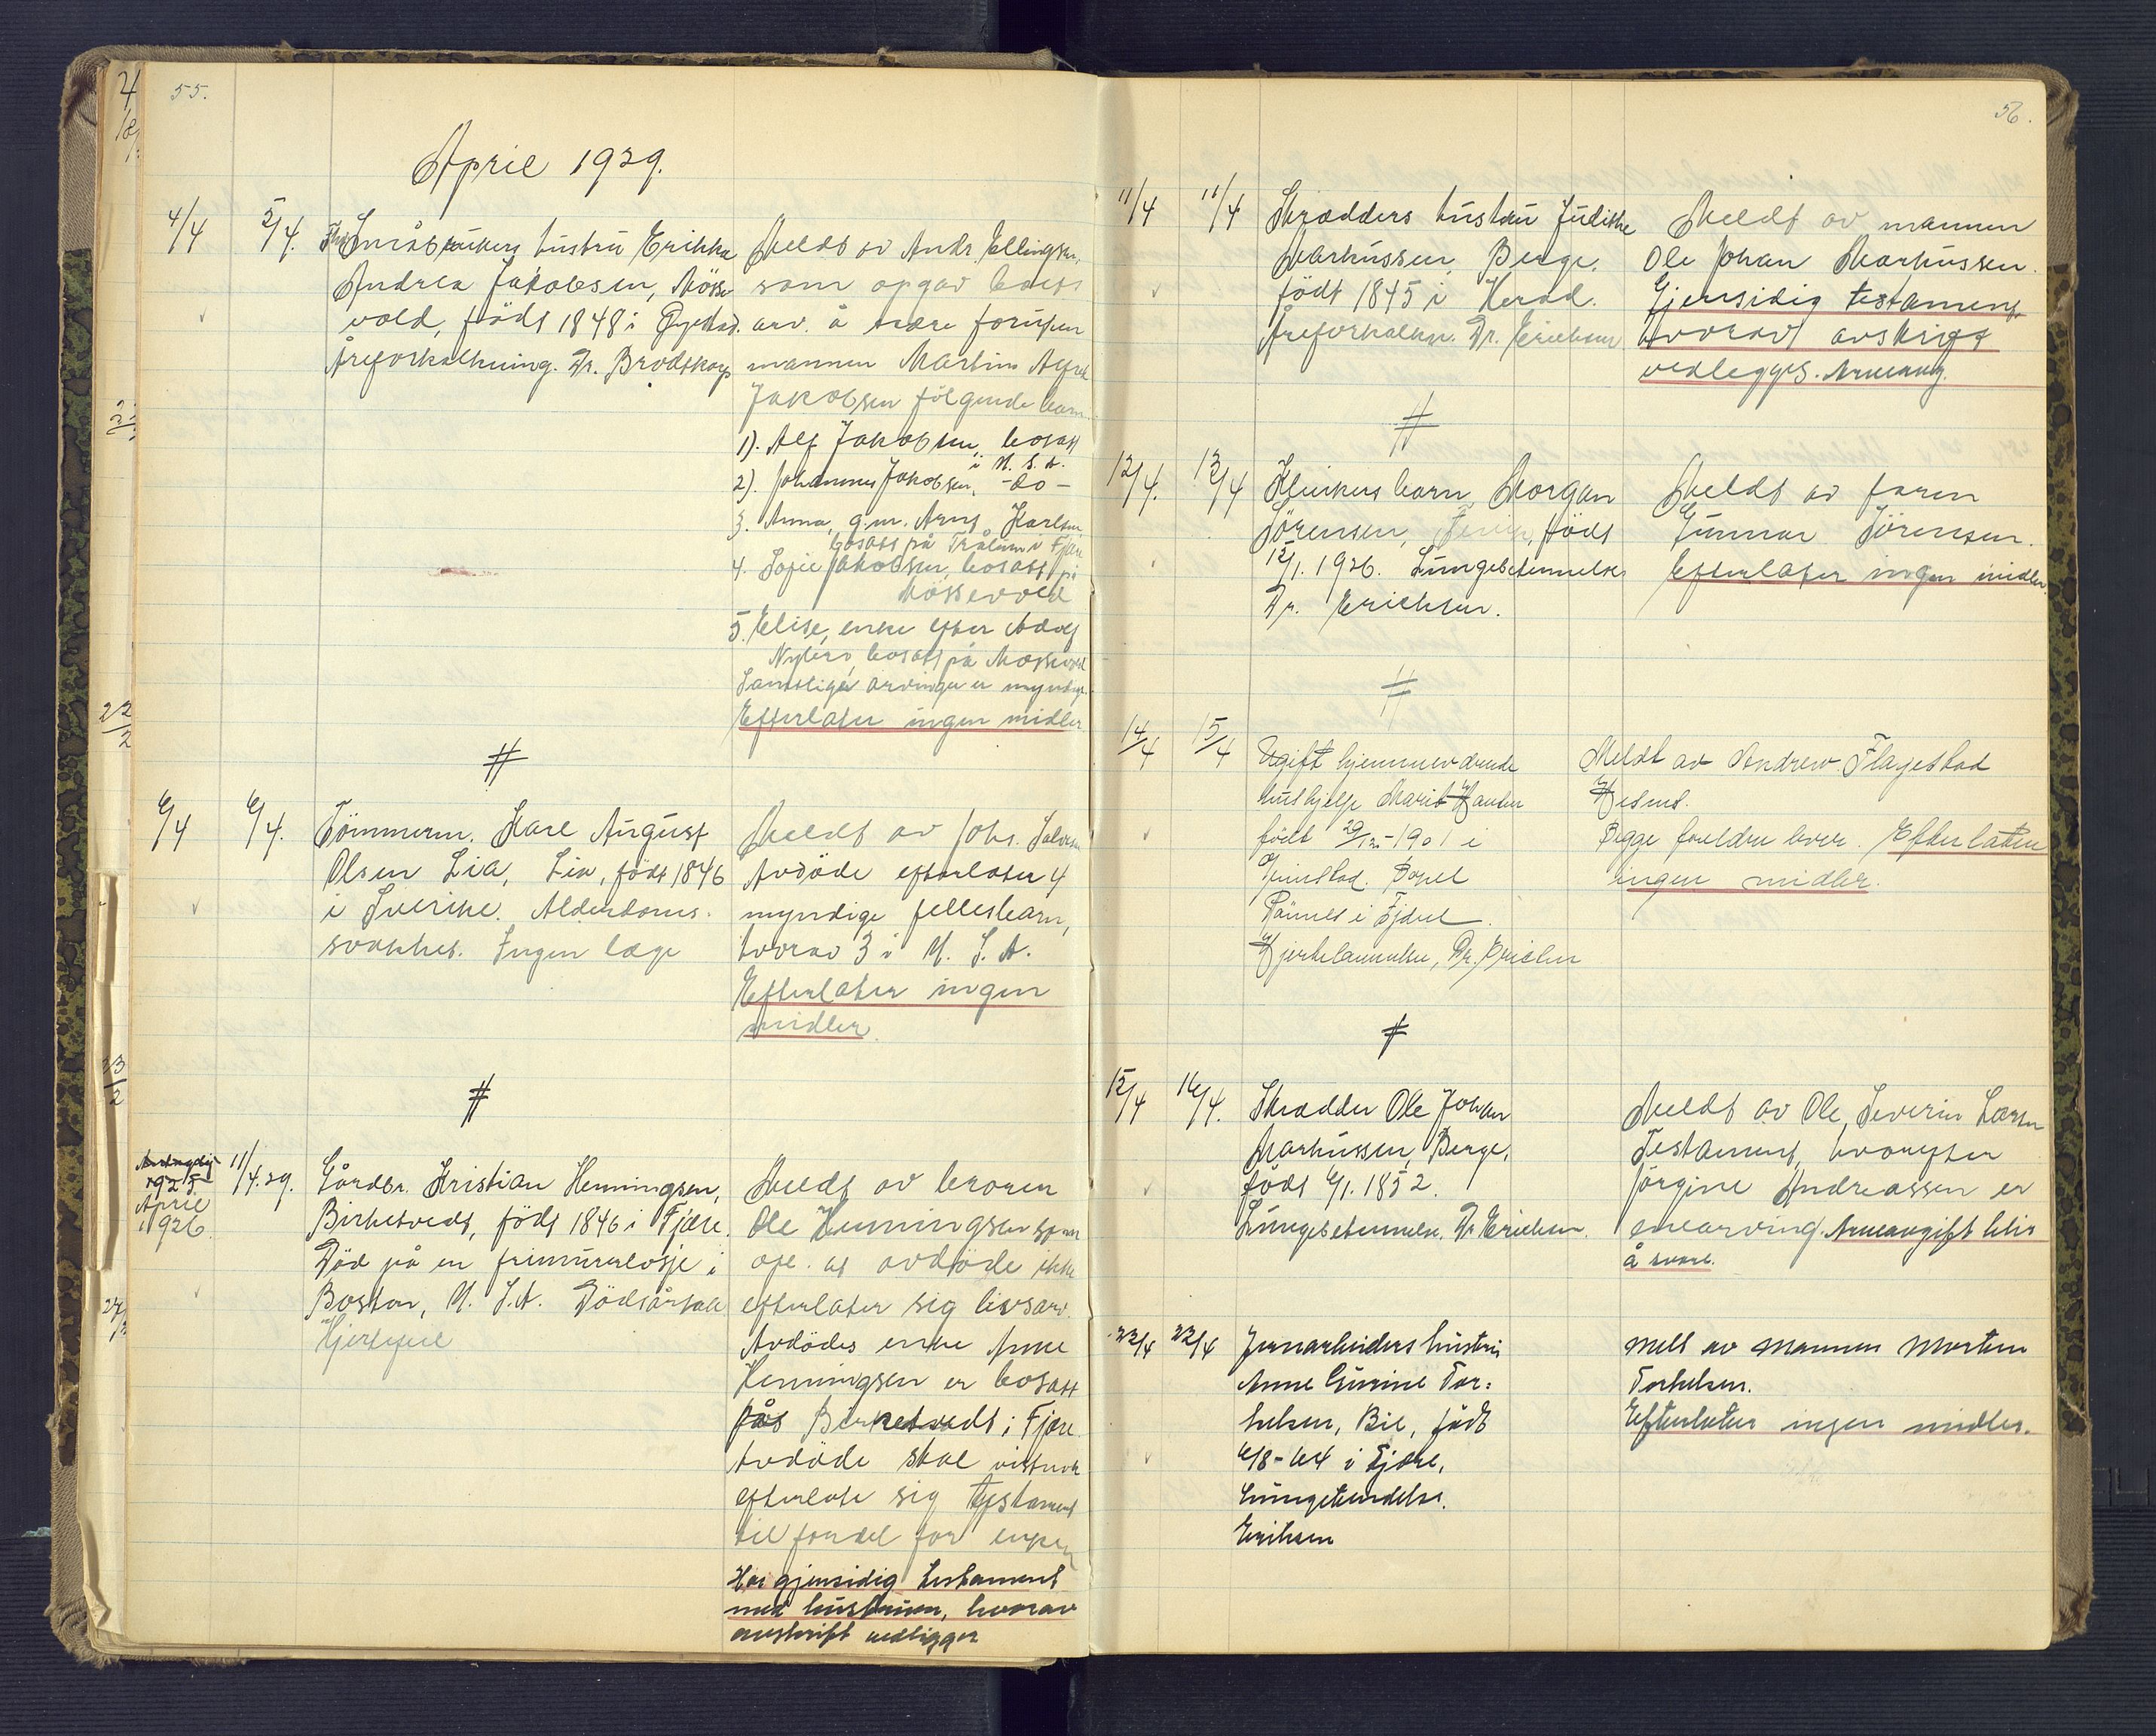 55.
April 1929.
4/4 5/4. Småbrukers hustru Erikka
Andrea Jakobsen, Mösse
vold, född 1848 i Øyestad.
Åreforkalkning. Dr. Brodtkorp
Meldt av Andr. Ellingsen,
som opgav
arv. å være foruten
mannen Martin Alfred
Jakobsen fölgende barn
1). Alf Jakobsen, bosatt
i U. S. A.
2). Johannes Jakobsen, -do-
3. Anna, g.m. Arns Karlsen
bosatt på Trålum i Fjære
4. Sofie Jakobsen, bosatt på
Mössevold
5. Elise, enke efter Adolf
Nyberg, bosatt på Mossevold
Samtlige arvinger er myndige.
Efterlater ingen midler
#
6/4 6/4. Tömmerm. Karl August
Olsen Lia, Lia, född 1846
i Sverike. Alderdoms-
svakhet. Ingen læge
Meldt av Johs. Salvesen
Avdöde efterlater 4
myndige fellesbarn,
hvorav 3 i U. S. A.
Efterlater ingen
midler.
#
1925
April
1926.
11/4.29. Gårdbr. Kristian Henningsen,
Birketvedt, född 1846 i Fjære.
Död på en frimurerlosje i
Boston, U. S. A. Dödsårsak
Hjertefeil
Meldt av broren
Ole Henningsen som
opl. at avdöde ikke
efterlater sig livsarv.
Avdödes enke Anne
Henningsen er bosatt
på Birketvedt i Fjære.
Avdöde skal visstnok
efterlate sig testament
til fordel for enken
Har gjensidig testament
med hustruen, hvorav
avskrift vedligger
56.
11/4 11/4 Skrædders hustru Judithe
Markussen, Berge.
född 1845 i Herad.
Åreforkalkn. Dr. Erichsen
Meldt av mannen
Ole Johan Markussen.
Gjensidig testament,
hvorav avskrift
vedlegges. Arveavg.
#
12/4. 13/4 barn Morgan
Sörensen, född
12/1. 1926. Lungebetennelse
Dr. Erichsen.
Meldt av faren
Gunnar Sörensen.
Efterlater ingen midler.
#
14/4 15/4 Ugift hjemmeværende
hushjelp Marit Hansen
född 29/12-1901 i
Grimstad. Bopel
Rönnes i Fjære.
Hjertelammelse, Dr. Erichsen
Meldt av Andrew Flagestad
Begge foreldre lever. Efterlater
ingen midler.
#
15/4 16/4. Skrædder Ole Johan
Markussen, Berge,
född 6/1. 1852.
Lungebetennelse. Dr Erichsen.
Meldt av Ole Severin Larsen
Testament, hvorefter
Jörgine Andreassen er
enearving. Arveavgift blir
å svare.
22/4 22/4 Jernarbeiders hustru
Anne Gurine Tor:
kelsen, Bie, född
6/8-64 i Fjære,
Lungebetendelse.
Eriksen
Meldt av mannen Morten
Torkelsen.
Efterlater ingen midler.